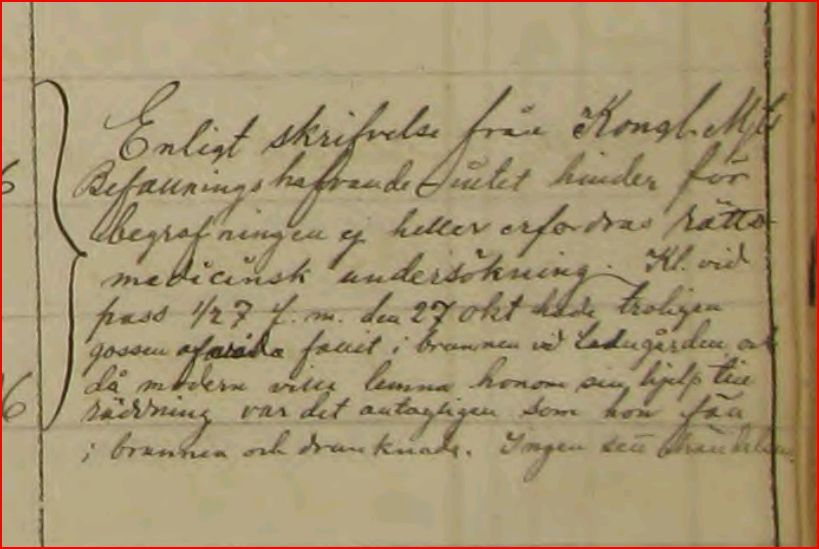 Enligt skrifvelse från Kongl. Mjts
Befallningshafvande intet hinder för
begrafningen ej heller erfordras rätts-
medicinsk undersökning. Kl. vid
pass 1/2 7 f. m. den 27 okt hade troligen
gossen fallit i brunnen vid Ladugården och
då modern ville lemna honom sin hjelp till
räddning var det antagligen som hon föll
i brunnen och drunknade. Ingen sett händelsen.